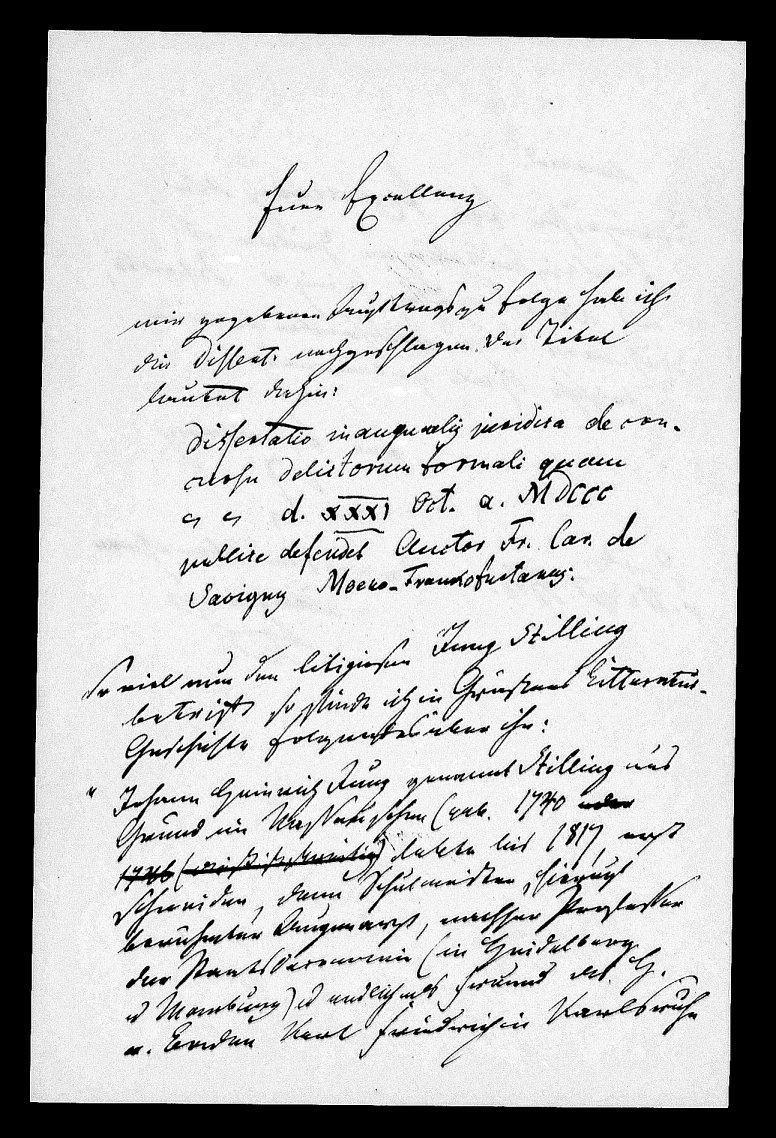 Eure Excellenz
mir gegebenen Auftrags zu folge habe ich
die Dissert. nachgeschlagen. Der Titel
lautet dahin:
Dissertatio inauguralis juridica de con-
cursu delictorum formali quam
d. XXXI Oct. a. MDCCC
publice defendet Auctor Fr. Car. de
Savigny Moeno-Francofurtanus.
So viel nun den Jung Stilling
betrifft so finde ich in Litteratur-
Geschichte folgendes über ihn:
" Johann Heinrich Jung genannt Stilling aus
Grund im (geb. 1740 oder
1746 ) lebte bis 1817, erst
Schneider, dann Schulmeister, hierauf
berühmter Augenarzt, nachher Professor
der Staatsoeconomie (in Heidelberg
u Marburg) u endlich als Freund des G.
v. Baden Karl Friedrich in Karlsruhe